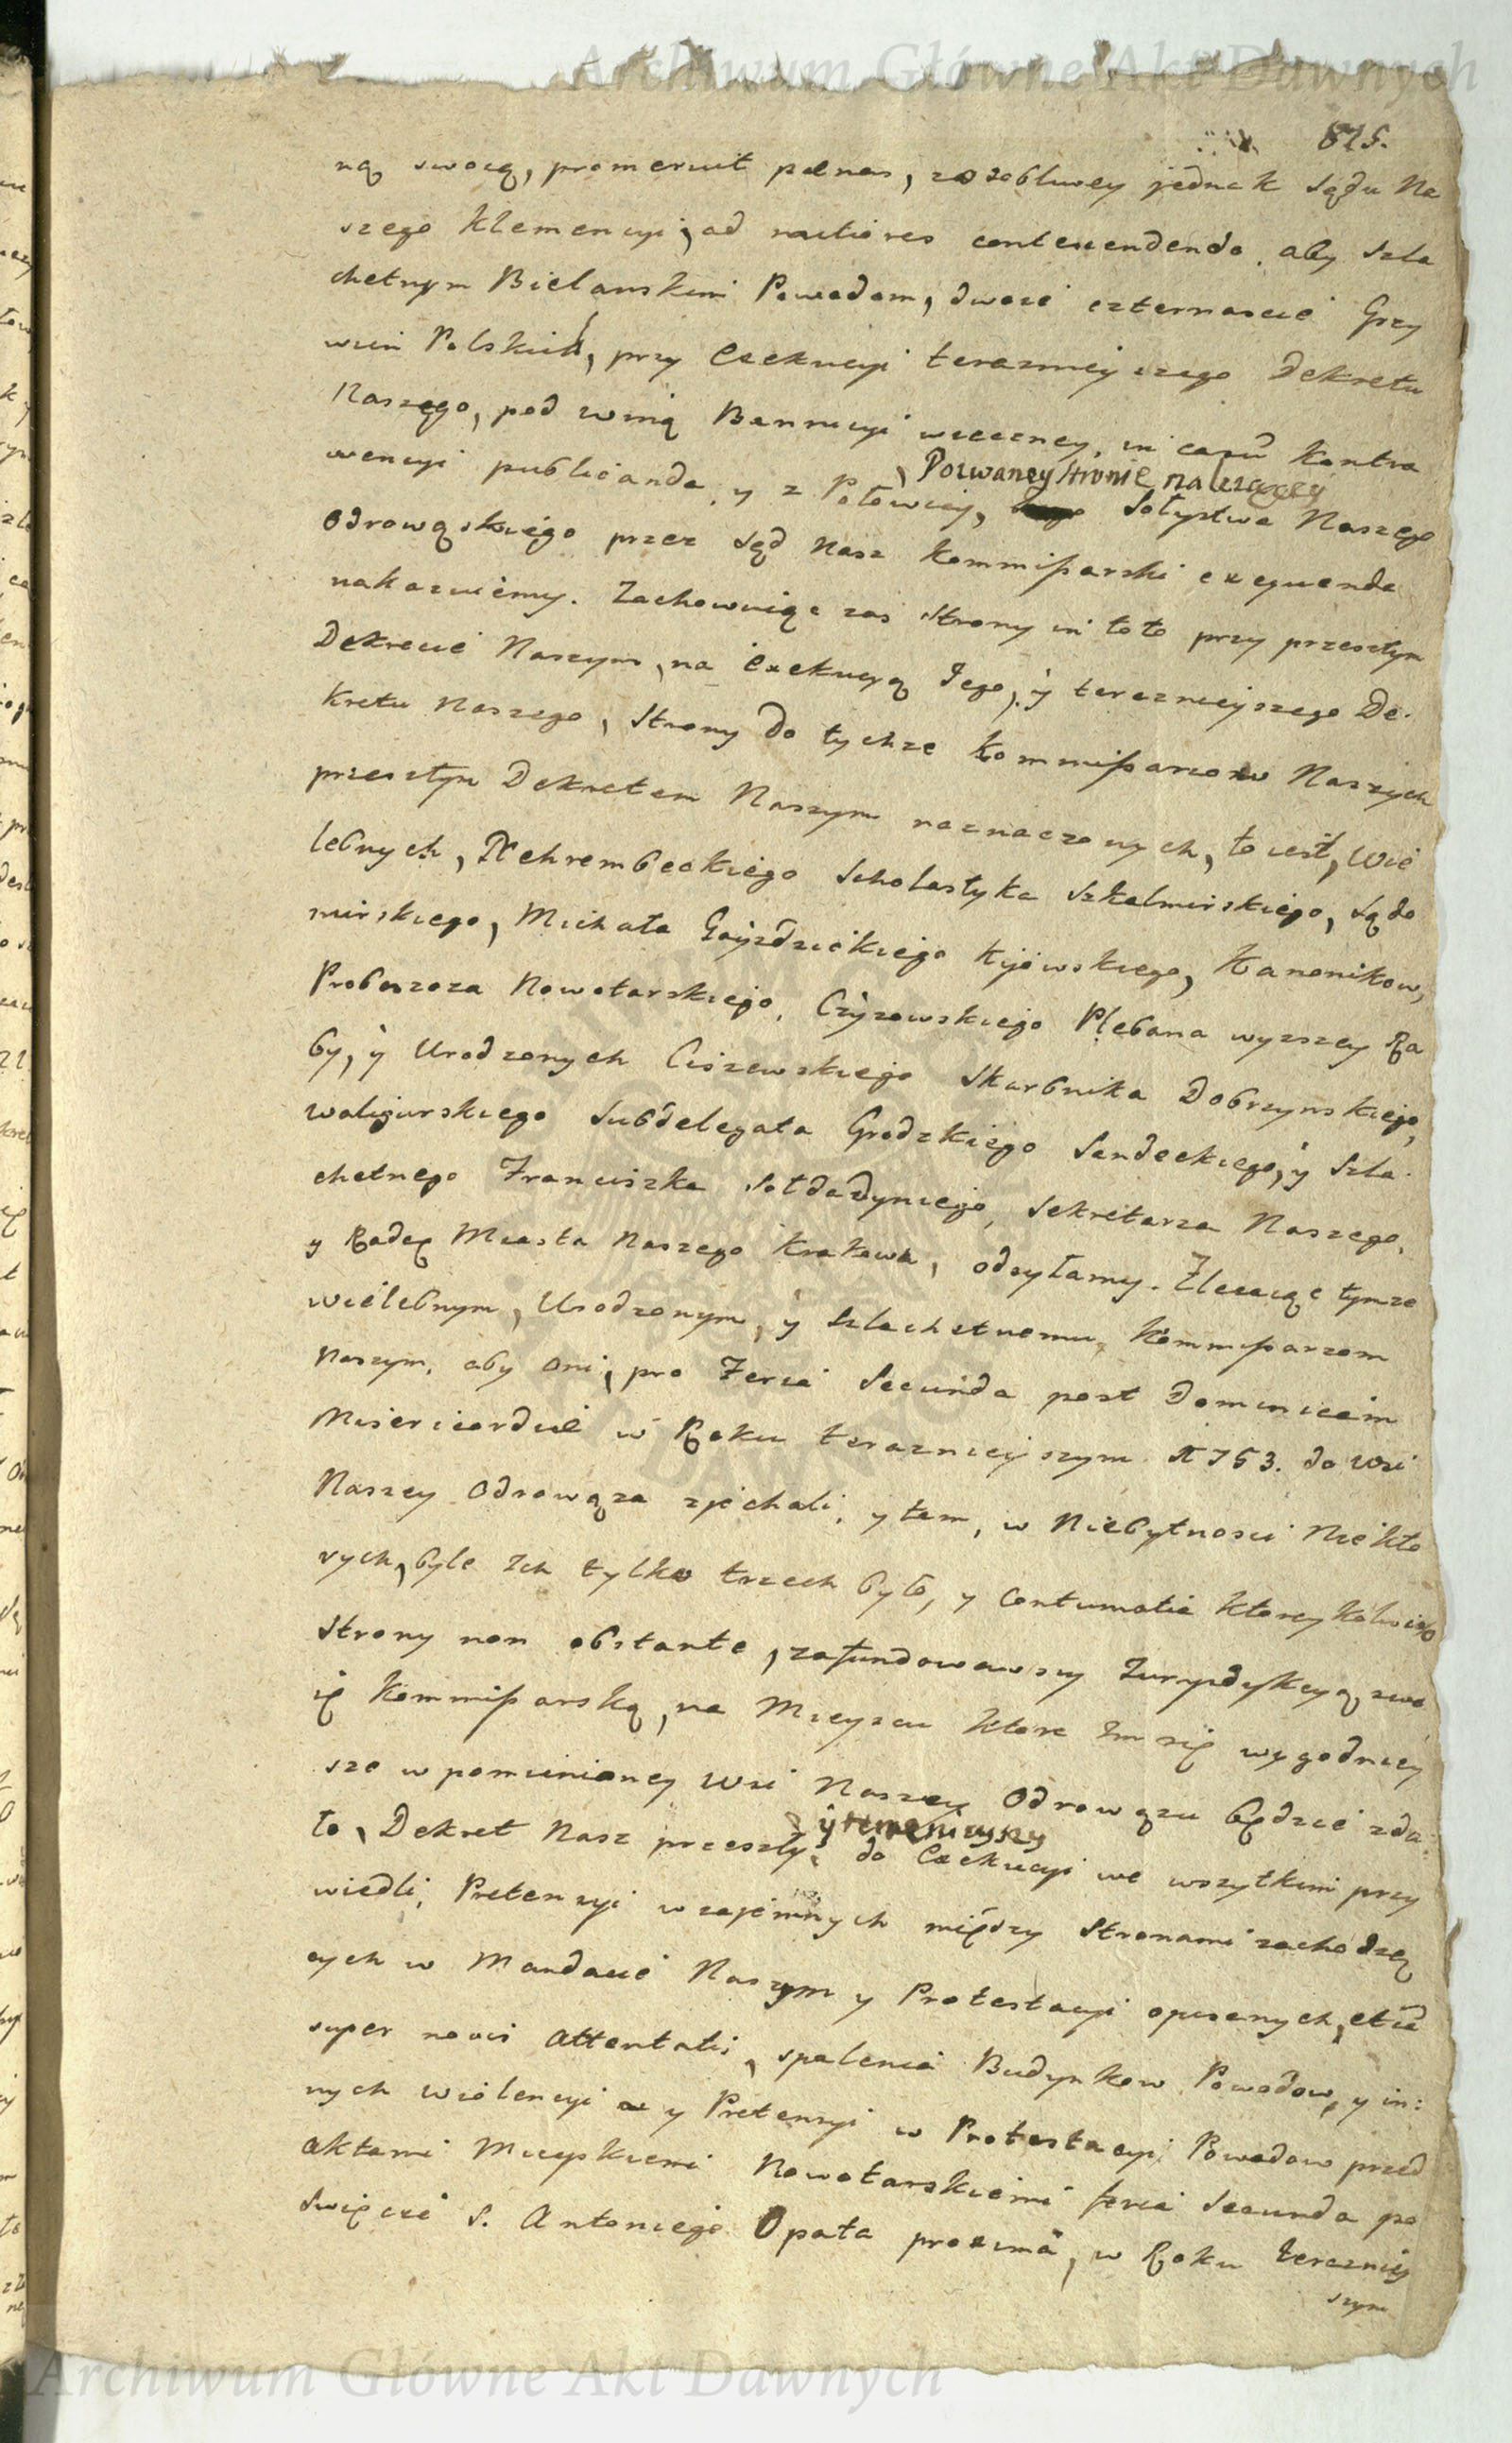 Archiwum Główne Akt Dawnych
825.
ną swoią, promeruit pænas, z osobliwey jednak Sądu Na
szego Klemencyi, ad mitiores contescendendo, aby Szla
chetnym Bielanskim Powodom, dwoie czternascie Grzy
wien Polskich, przy Exekucyi teraznieyszego Dekretu
Naszego, pod winą Bannicyi wieczney, in casu Kontra
wencyi publicanda, y z Połowicy, Pozwaney stronie nalezącey Sołystwa Naszego
Odrowąskiego przez Sąd Nasz Kommissarski exequenda
nakazuiemy. Zachowuiąc zas Strony in toto przy przeszłym
Dekrecie Naszym, na Exekucyą Jego, y teraznieyszego De-
kretu Naszego, Strony do tychze Kommissarzow Naszych
przeszłym Dekretem Naszym naznaczonych, to iest, Wie
lebnych, Chrembeckiego Scholastyka Szkalmirskiego, Sędo
mirskiego, Michała Gayzdzickiego Kijowskiego, Kanonikow,
Proboszcza Nowotarskiego, Czyzowskiego Plebana wyzszey Ra
by, y Urodzonych Ciszewskiego Skarbnika Dobrzynskiego,
Waligurskiego Subdelegata Grodzkiego Sandeckiego, y Szla-
chetnego Franciszka Sołdadyniego, Sekretarza Naszego,
y Radcę Miasta Naszego Krakowa, odsyłamy. Zlecaiąc tymze
Wielebnym, Urodzonym, y Szlachetnemu, Kommissarzom
Naszym, aby oni, pro Feria Secunda post Dominicam
Misericordiæ w Roku teraznieyszym 1753. do Wsi
Naszey Odrowąza zjechali, y tam, w Niebytnosci Niekto
rych, byle Ich tylko trzech było, y Contumatia ktoreykolwiek
Strony non obstante, zafundowawszy Jurysdykcyą swo
ię Kommissarską, na Mieyscu ktore Im się wygodniey
sze w pomienioney Wsi Naszey Odrowązu będzie zda
ło, Dekret Nasz przeszły, y teraznieyszy do Exekucyi we wszytkim przy
wiedli, Pretensyi wzajemnych między Stronami zachodzą
cych w Mandacie Naszym y Protestacyi opisanych, etiã
super novis Attentatis, spalenia Budynkow Powodow, y in:
nych wiolencyi y Pretensyi w Protestacyi Powodow przed
Aktami Mieyskiemi Nowotarskiemi feria Secunda po
Swięcie S. Antoniego Opata proxima, w Roku teraznięy
szym
Archiwum Główne Akt Dawnych